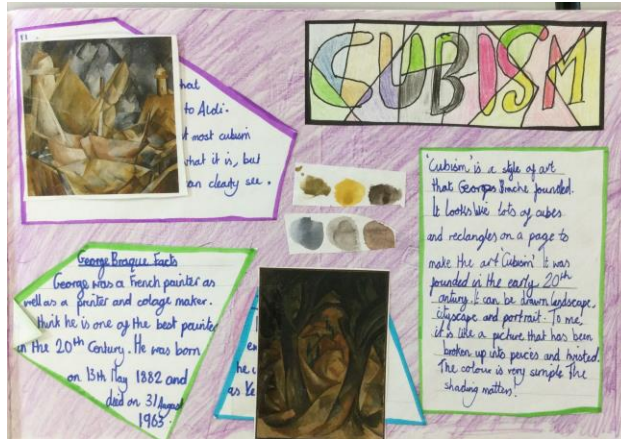 CUBISM
hat
to Aldi.
t most cubism
what it is, but
an clearly see.
'Cubism' is a style of art
that Georges Brache founded.
It looks like lots of cubes
and rectangles on a page to
make the art 'Cubism'. It was
founded in the early 20th
century. It can be drawn landscape,
cityscape and portrait. To me,
it is like a picture that has been
broken up into peices and twisted.
The colour is very simple The
shading matters!
George Braque Facts
George was a French painter as
well as a printer and colage maker.
think he is one of the best painter
in the 20th Century. He was born
on 13th May 1882 and
died on 31 August
1963.
he
as